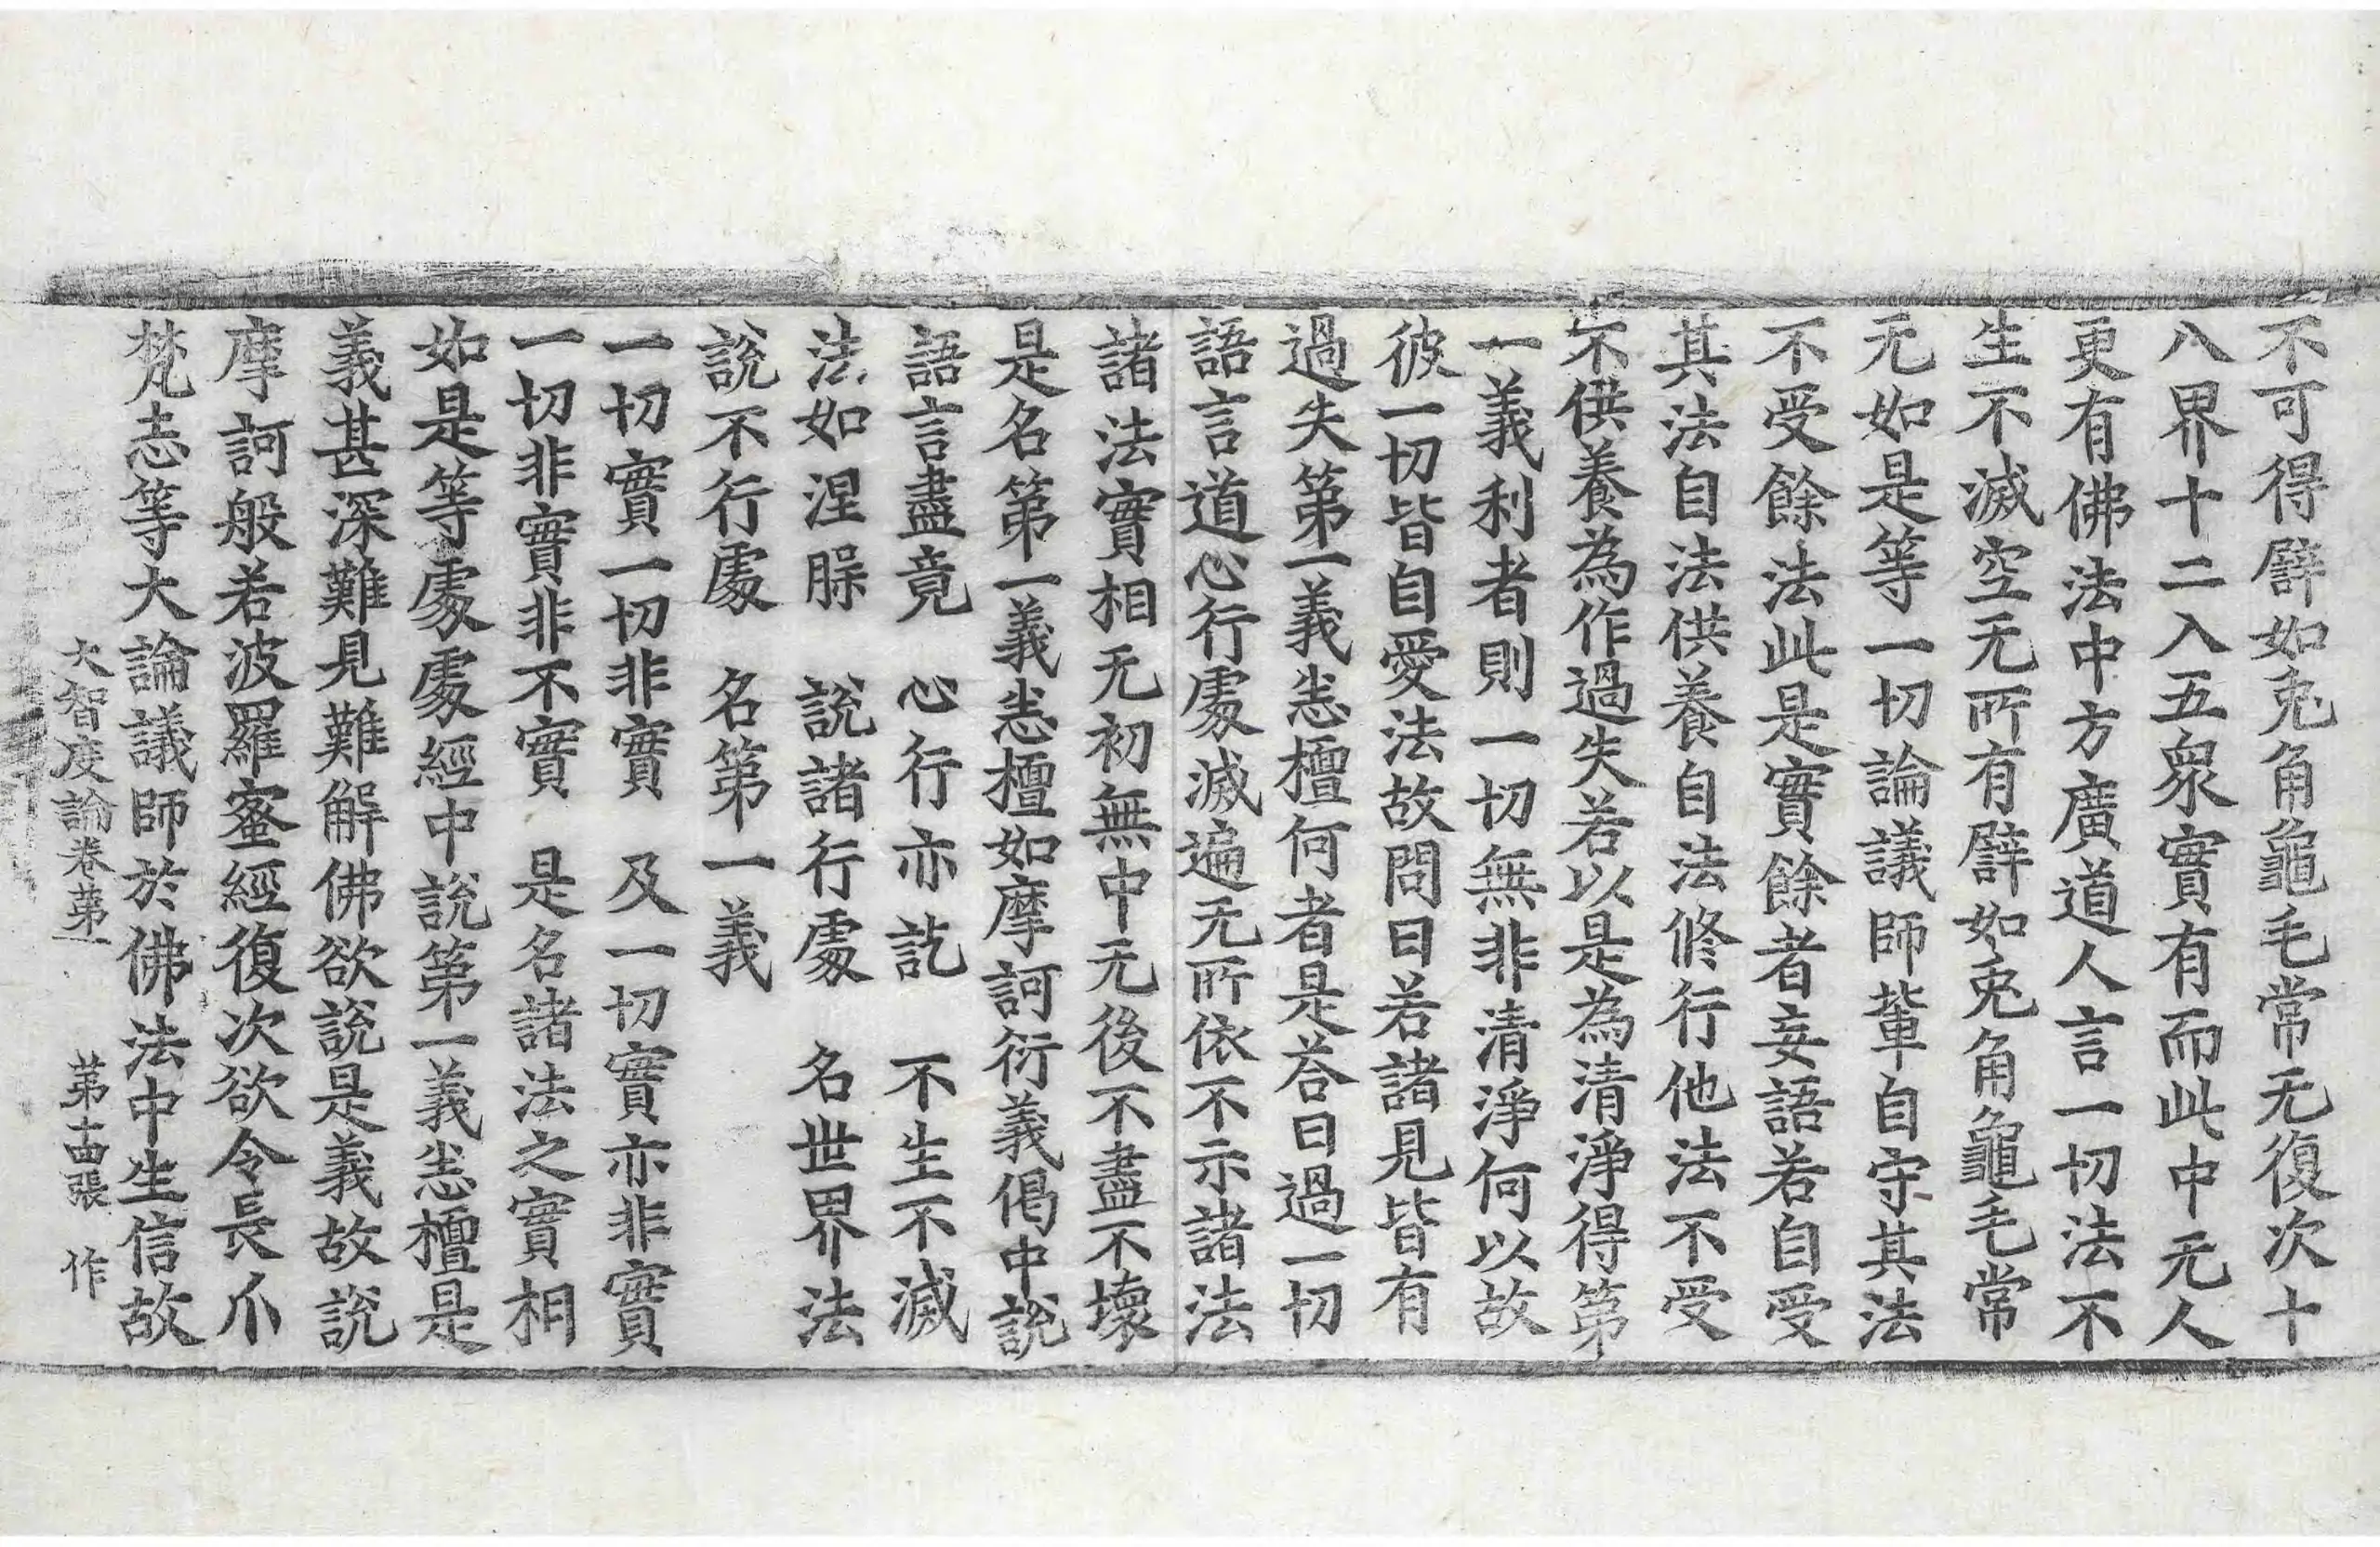 不可得譬如兎角龜毛常无復次十
八界十二入五衆實有而此中无人
更有佛法中方廣道人言一切法不
生不滅空无所有譬如兎角龜毛常
无如是等一切論議師輩自守其法
不受餘法此是實餘者妄語若自受
其法自法供養自法修行他法不受
不供養為作過失若以是為清淨得第
一義利者則一切無非清淨何以故
彼一切皆自愛法故問曰若諸見皆有
過失第一義悉檀何者是荅曰過一切
語言道心行處滅遍无所依不示諸法
諸法實相无初無中无後不盡不壞
是名第一義悉檀如摩訶衍義偈中說
語言盡竟　心行亦訖　不生不滅
法如涅槃　說諸行處　名世界法
說不行處　名第一義
一切實一切非實　及一切實亦非實
一切非實非不實　是名諸法之實相
如是等處處經中說第一義悉檀是
義甚深難見難解佛欲說是義故說
摩訶般若波羅蜜經復次欲令長爪
梵志等大論議師於佛法中生信故
大智度論卷第一　第十四張　作